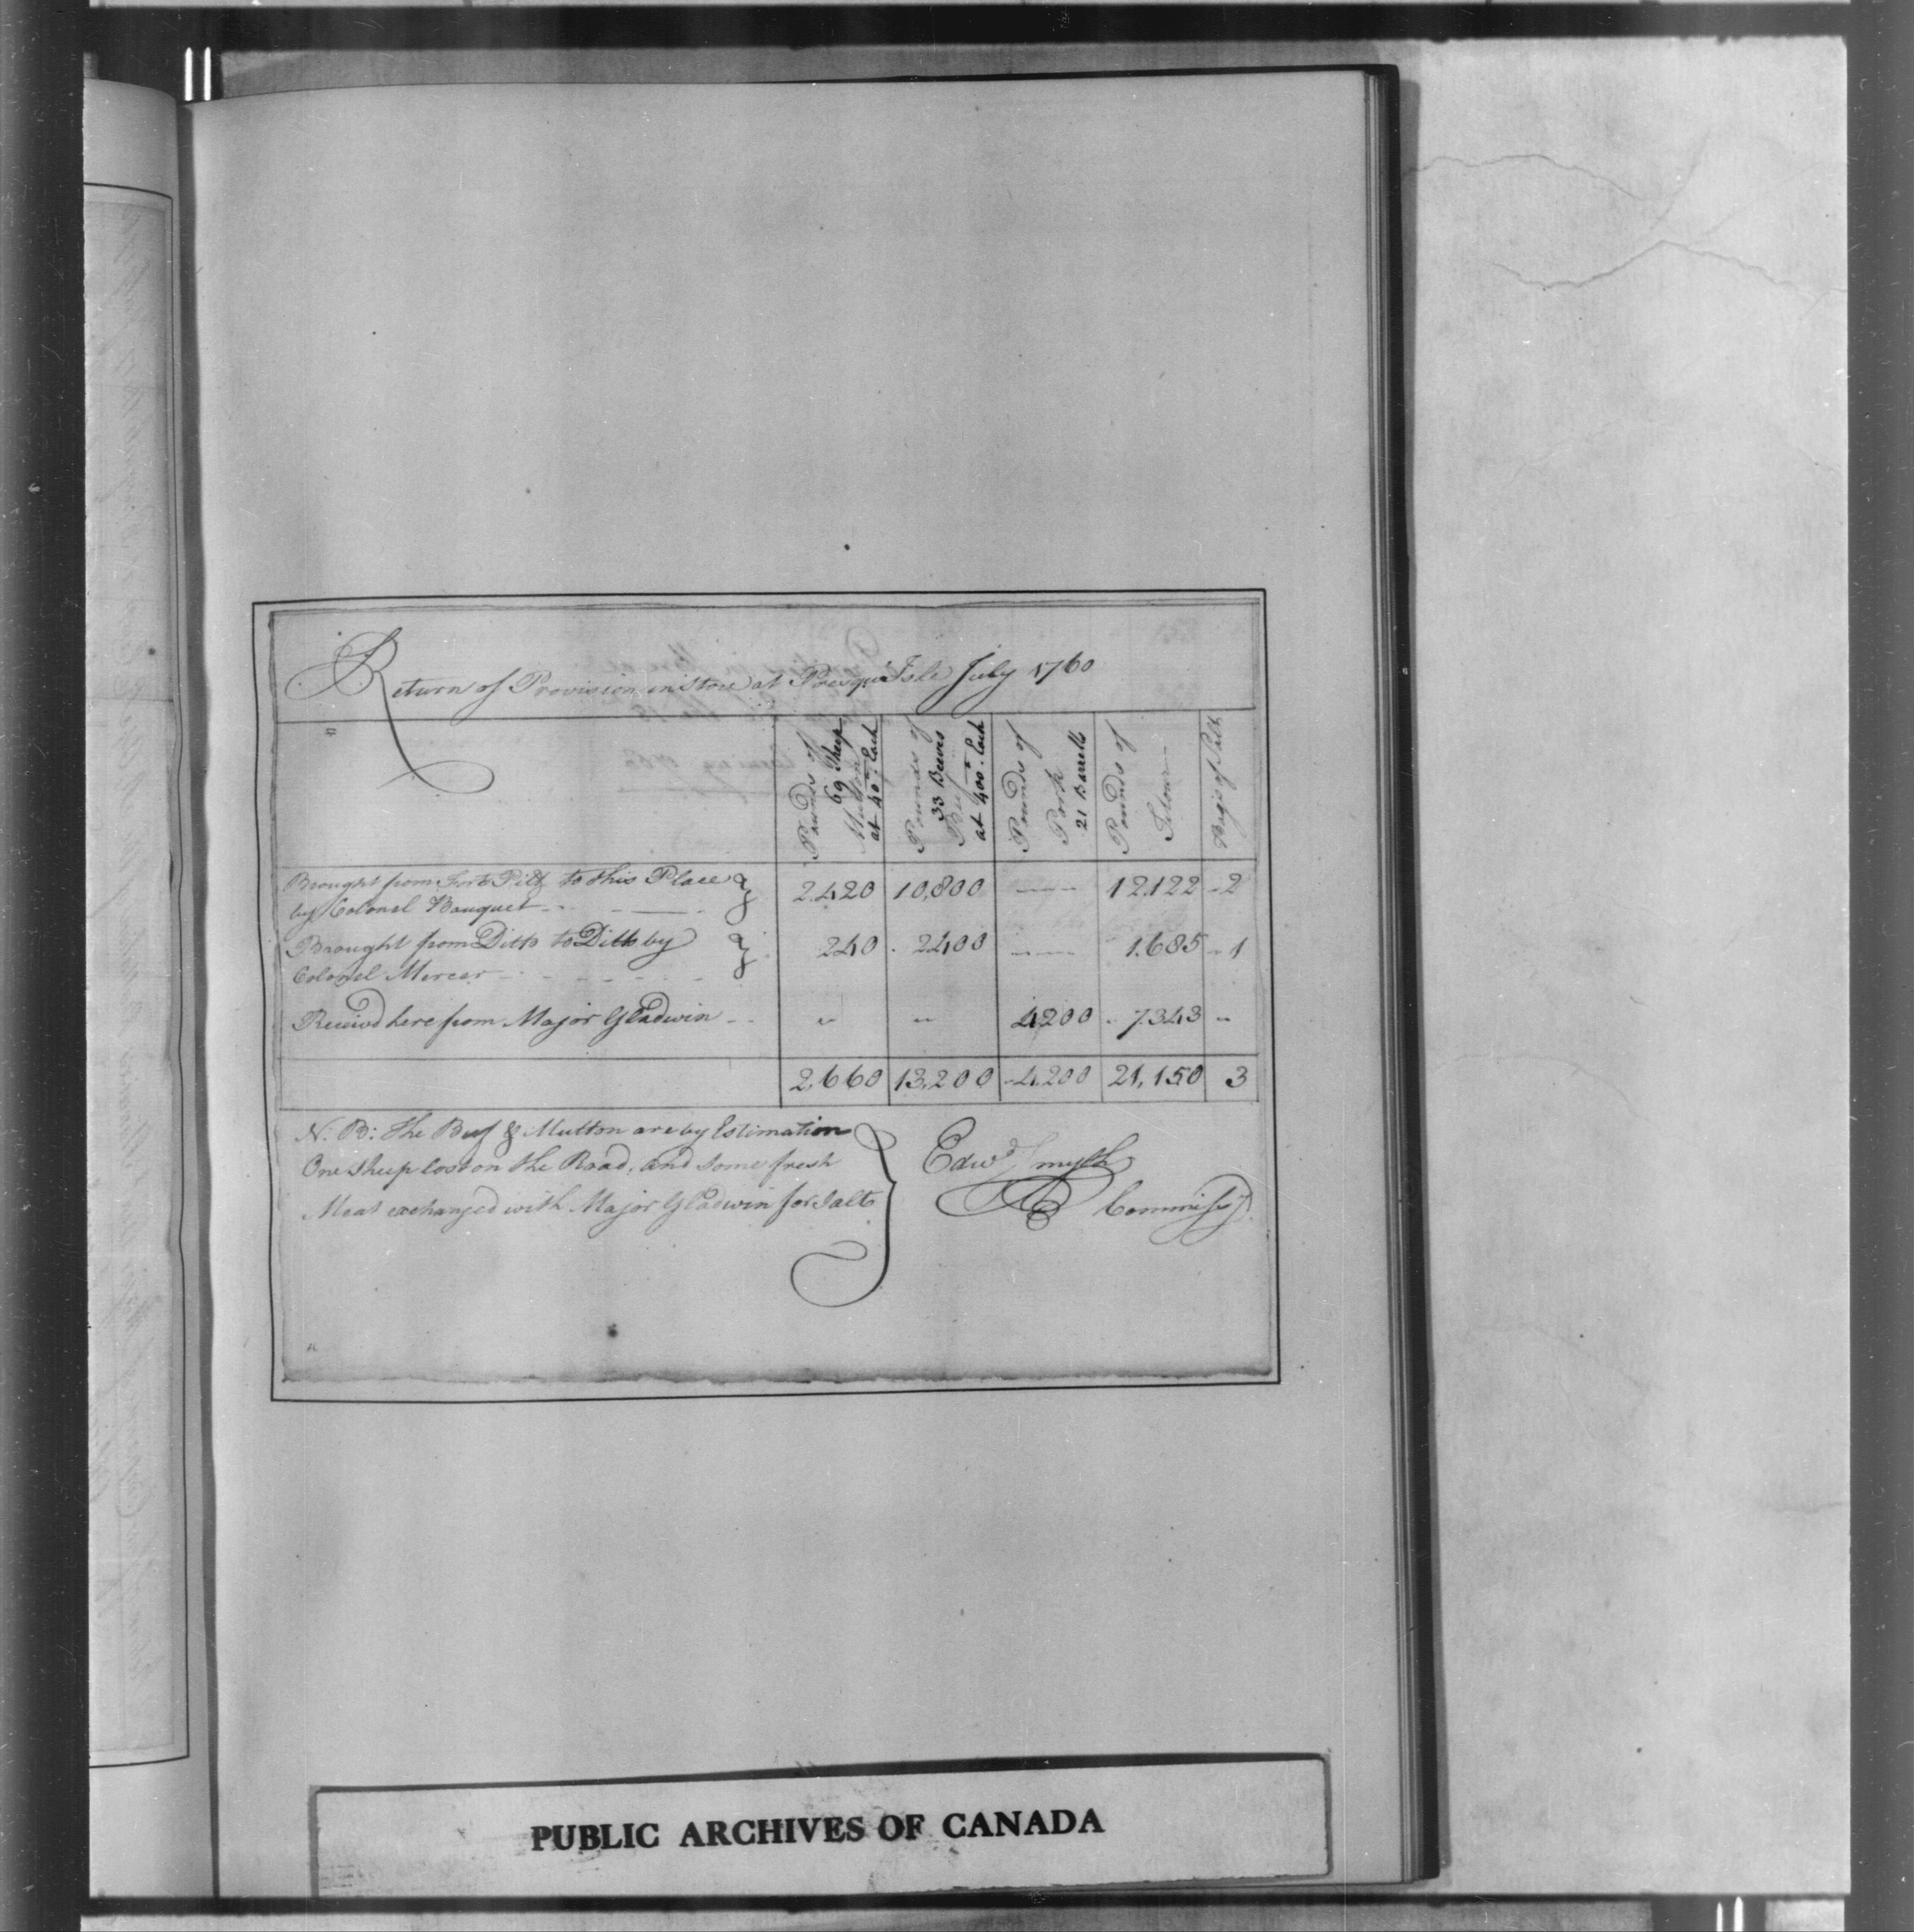 Return of Provision in Store at Presqu'Isle July 1760
Pounds of
69 Sheep
Mutton
at 40 lb. Each
Pounds of
33 Beeves
Beef
at 400 lb. Each
Pounds of
Pork
21 Barrells
Pounds of
Flour
Bags of Salt
Brought from Fort Pitt to this Place
by Colonel Bouquet 2.420 10,800 12.122 2
Brought from Ditto to Ditto by
Colonel Mercer 240 2400 1.685 1
Receivd here from Major Gladwin 4200 7.343
2,660 13,200 4.200 21,150 3
N. B: The Beef & Mutton are by Estimation
One sheep lost on the Road, and some fresh
Meat exchanged with Major Gladwin for Salt
Edwd Smyth
Commissy
PUBLIC ARCHIVES OF CANADA